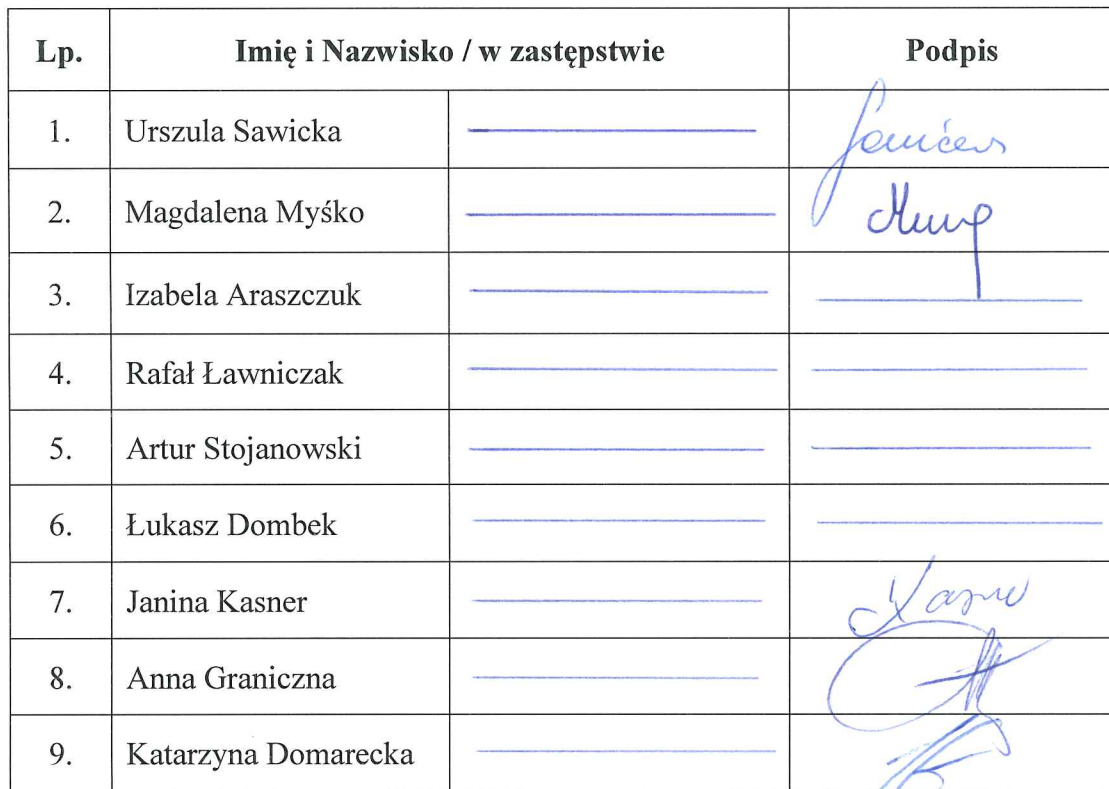 Lp. Imię i Nazwisko / w zastępstwie Podpis
1. Urszula Sawicka
2. Magdalena Myśko
3. Izabela Araszczuk
4. Rafał Ławniczak
5. Artur Stojanowski
6. Łukasz Dombek
7. Janina Kasner
8. Anna Graniczna
9. Katarzyna Domarecka